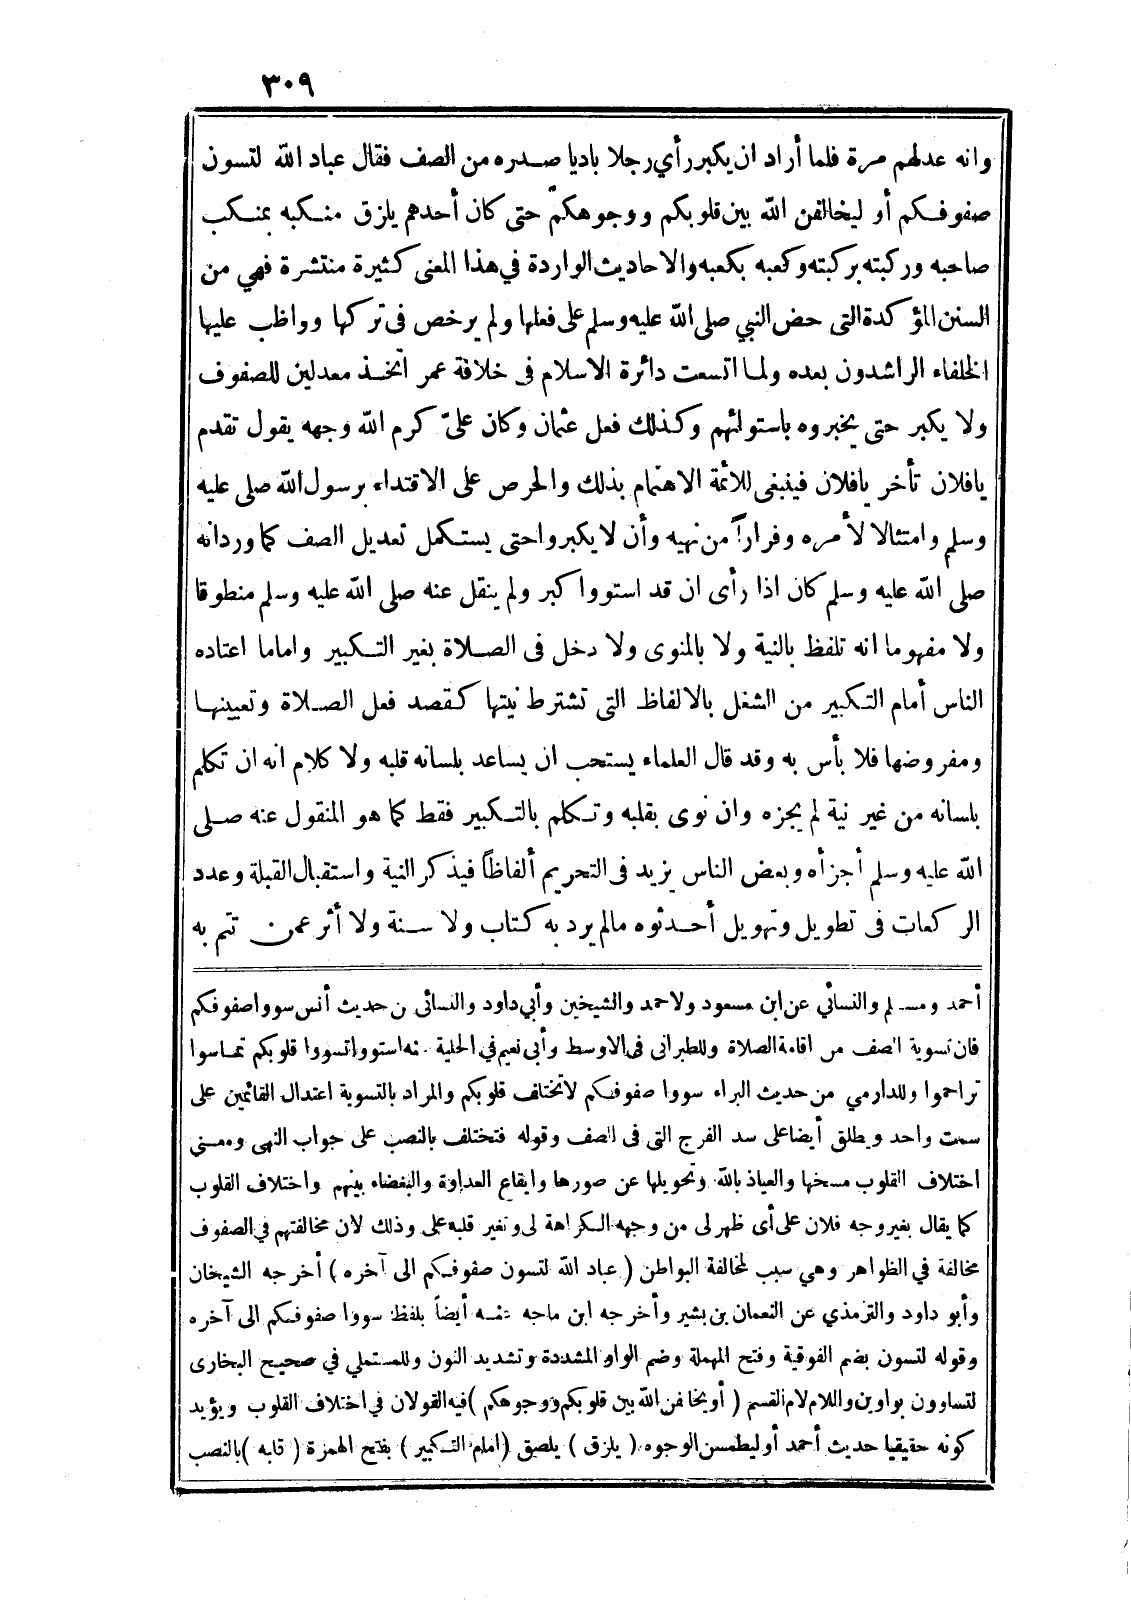 ٣٠٩
وانه عدلهم مرة فلما أراد ان يكبر رأي رجلا باديا صدره من الصف فقال عباد الله لتسون
صفوفكم أو ليخالفن الله بين قلوبكم ووجوهكم حتى كان أحدهم يلزق منكبه بمنكب
صاحبه وركبته بركبته وكعبه بكعبه والاحاديث الواردة في هذا المعنى كثيرة منتشرة فهي من
السنن المؤكدة التى حض النبي صلى الله عليه وسلم على فعلها ولم يرخص فى تركها وواظب عليها
الخلفاء الراشدون بعده ولما اتسعت دائرة الاسلام فى خلافة عمر اتخذ معدلين للصفوف
ولا يكبر حتى يخبروه باستوائهم وكذلك فعل عثمان وكان علىّ كرم الله وجهه يقول تقدم
يافلان تأخر يافلان فينبغى للائمة الاهتمام بذلك والحرص على الاقتداء برسول الله صلى عليه
وسلم وامتثالا لأمره وفراراً من نهيه وأن لا يكبروا حتى يستكمل تعديل الصف كما ورد انه
صلى الله عليه وسلم كان اذا رأى ان قد استووا كبر ولم ينقل عنه صلى الله عليه وسلم منطوقا
ولا مفهوما انه تلفظ بالنية ولا بالمنوى ولا دخل فى الصلاة بغير التكبير واماما اعتاده
الناس أمام التكبير من الشغل بالالفاظ التى تشترط نيتها كقصد فعل الصلاة وتعيينها
ومفروضها فلا بأس به وقد قال العلماء يستحب ان يساعد بلسانه قلبه ولا كلام انه ان تكلم
بلسانه من غير نية لم يجزه وان نوى بقلبه وتكلم بالتكبير فقط كما هو المنقول عنه صلى
الله عليه وسلم أجزأه وبعض الناس يزيد فى التحريم ألفاظاً فيذكر النية واستقبال القبلة وعدد
الركعات فى تطويل وتهويل أحدثوه مالم يرد به كتاب ولا سنة ولا أثر عمن تتم به
أحمد ومسلم والنسائي عن ابن مسعود ولاحمد والشيخين وأبي داود والنسائى ن حديث أنس سووا صفوفكم
فان تسوية الصف من اقامة الصلاة وللطبرانى فى الاوسط وأبى نعيم في الحلية استووا تسووا قلوبكم تماسوا
تراحموا وللدارمي من حديث البراء سووا صفوفكم لا تختلف قلوبكم والمراد بالتسوية اعتدال القائمين على
سمت واحد ويطلق أيضا على سد الفرج التى فى الصف وقوله فتختلف بالنصب على جواب النهى ومعنى
اختلاف القلوب مسخها والعياذ بالله وتحويلها عن صورها وايقاع العداوة والبغضاء بينهم واختلاف القلوب
كما يقال بغير وجه فلان على أى ظهر لى من وجهه الكراهة لى وتغير قلبه على وذلك لان مخالفتهم في الصفوف
مخالفة في الظواهر وهي سبب لمخالفة البواطن ( عباد الله لتسون صفوفكم الى آخره ) أخرجه الشيخان
وأبو داود والترمذي عن النعمان بن بشير وأخرجه ابن ماجه عنه أيضاً بلفظ سووا صفوفكم الى آخره
وقوله لتسون بضم الفوقية وفتح المهملة وضم الواو المشددة وتشديد النون وللمستملي في صحيح البخارى
لتساوون بواوين واللام لام القسم ( أو يخالفن الله بين قلوبكم ووجوهكم ) فيه القولان في اختلاف القلوب ويؤيد
كونه حقيقيا حديث أحمد أو ليطمسن الوجوه ( يلزق ) يلصق ( امام التكبير ) بفتح الهمزة ( قلبه ) بالنصب